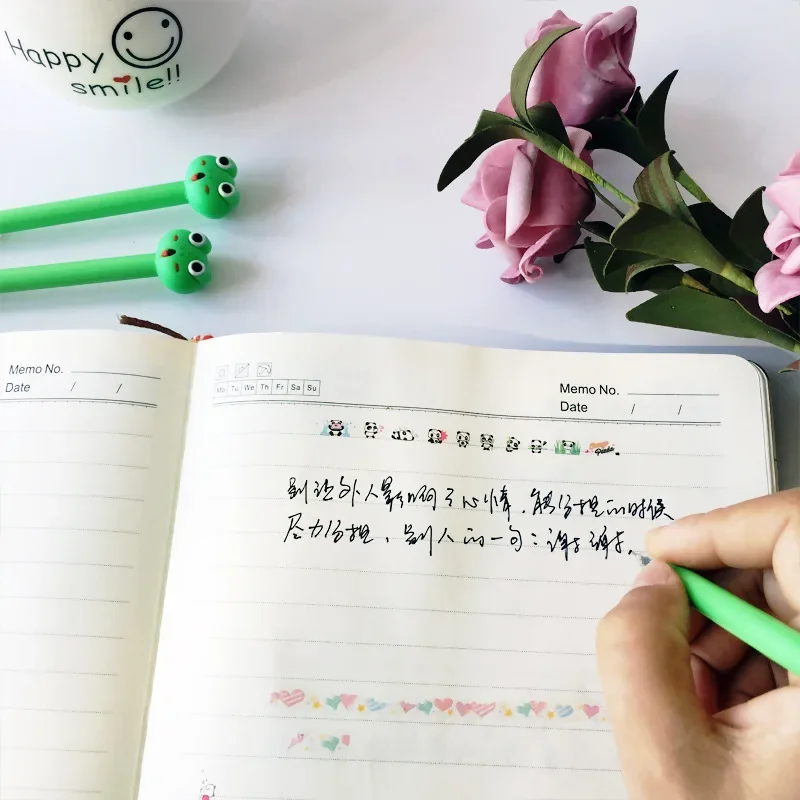 Happy
smile!!
Memo No.
Date / /
Mo Tu We Th Fr Sa Su
Memo No.
Date / /
Panda
别让外人影响了心情，能分担的时候
尽力分担，别人的一句：谢谢谢谢。